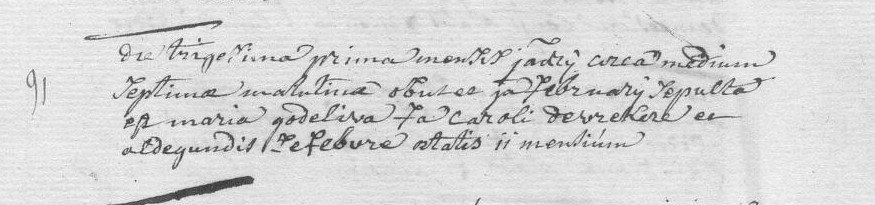 91
die trigesima prima mensis jarij circa medium
septimae matutinae obiit et ja februarij sepulta
est maria godeliva fa caroli deneckere et
aldegundis Lefebvre aetatis 11 mensium